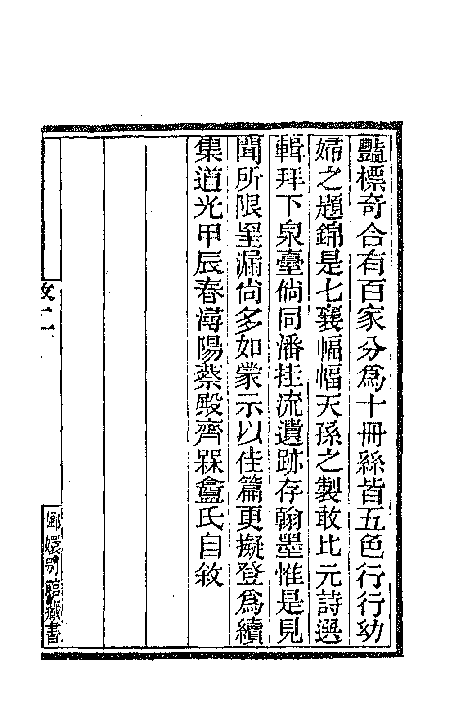 豔標奇合有百家分為十冊絲皆五色行行幼
婦之題錦是七襄幅幅天孫之製敢比元詩選
輯拜下泉臺倘同潘挂流遺跡存翰墨惟是見
聞所限罣漏尚多如蒙示以佳篇更擬登為續
集道光甲辰春潯陽蔡殿齊槑盦氏自敘
敘二
嫏嬛別館藏書